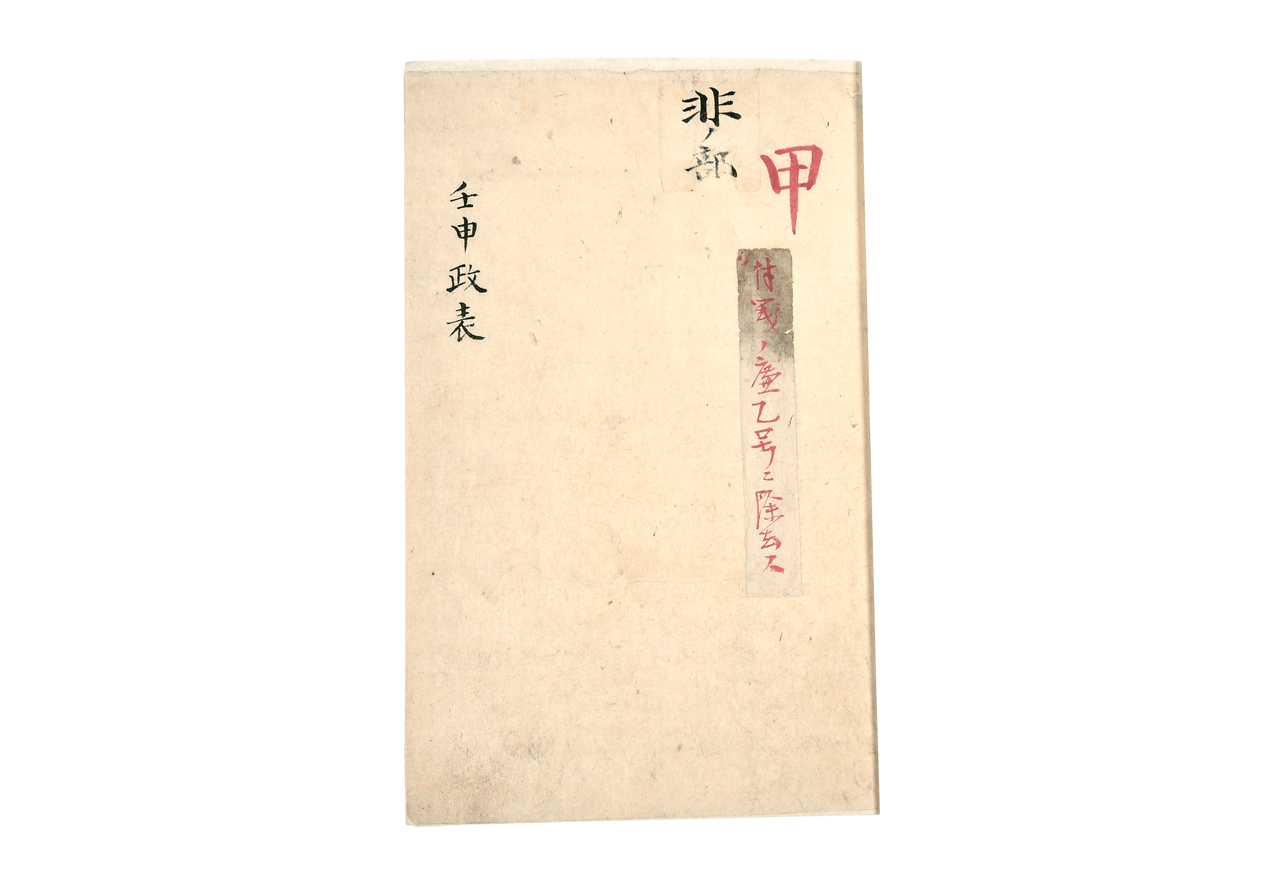 甲
ノ廉乙号ニ除去ス
非ノ部
壬申政表